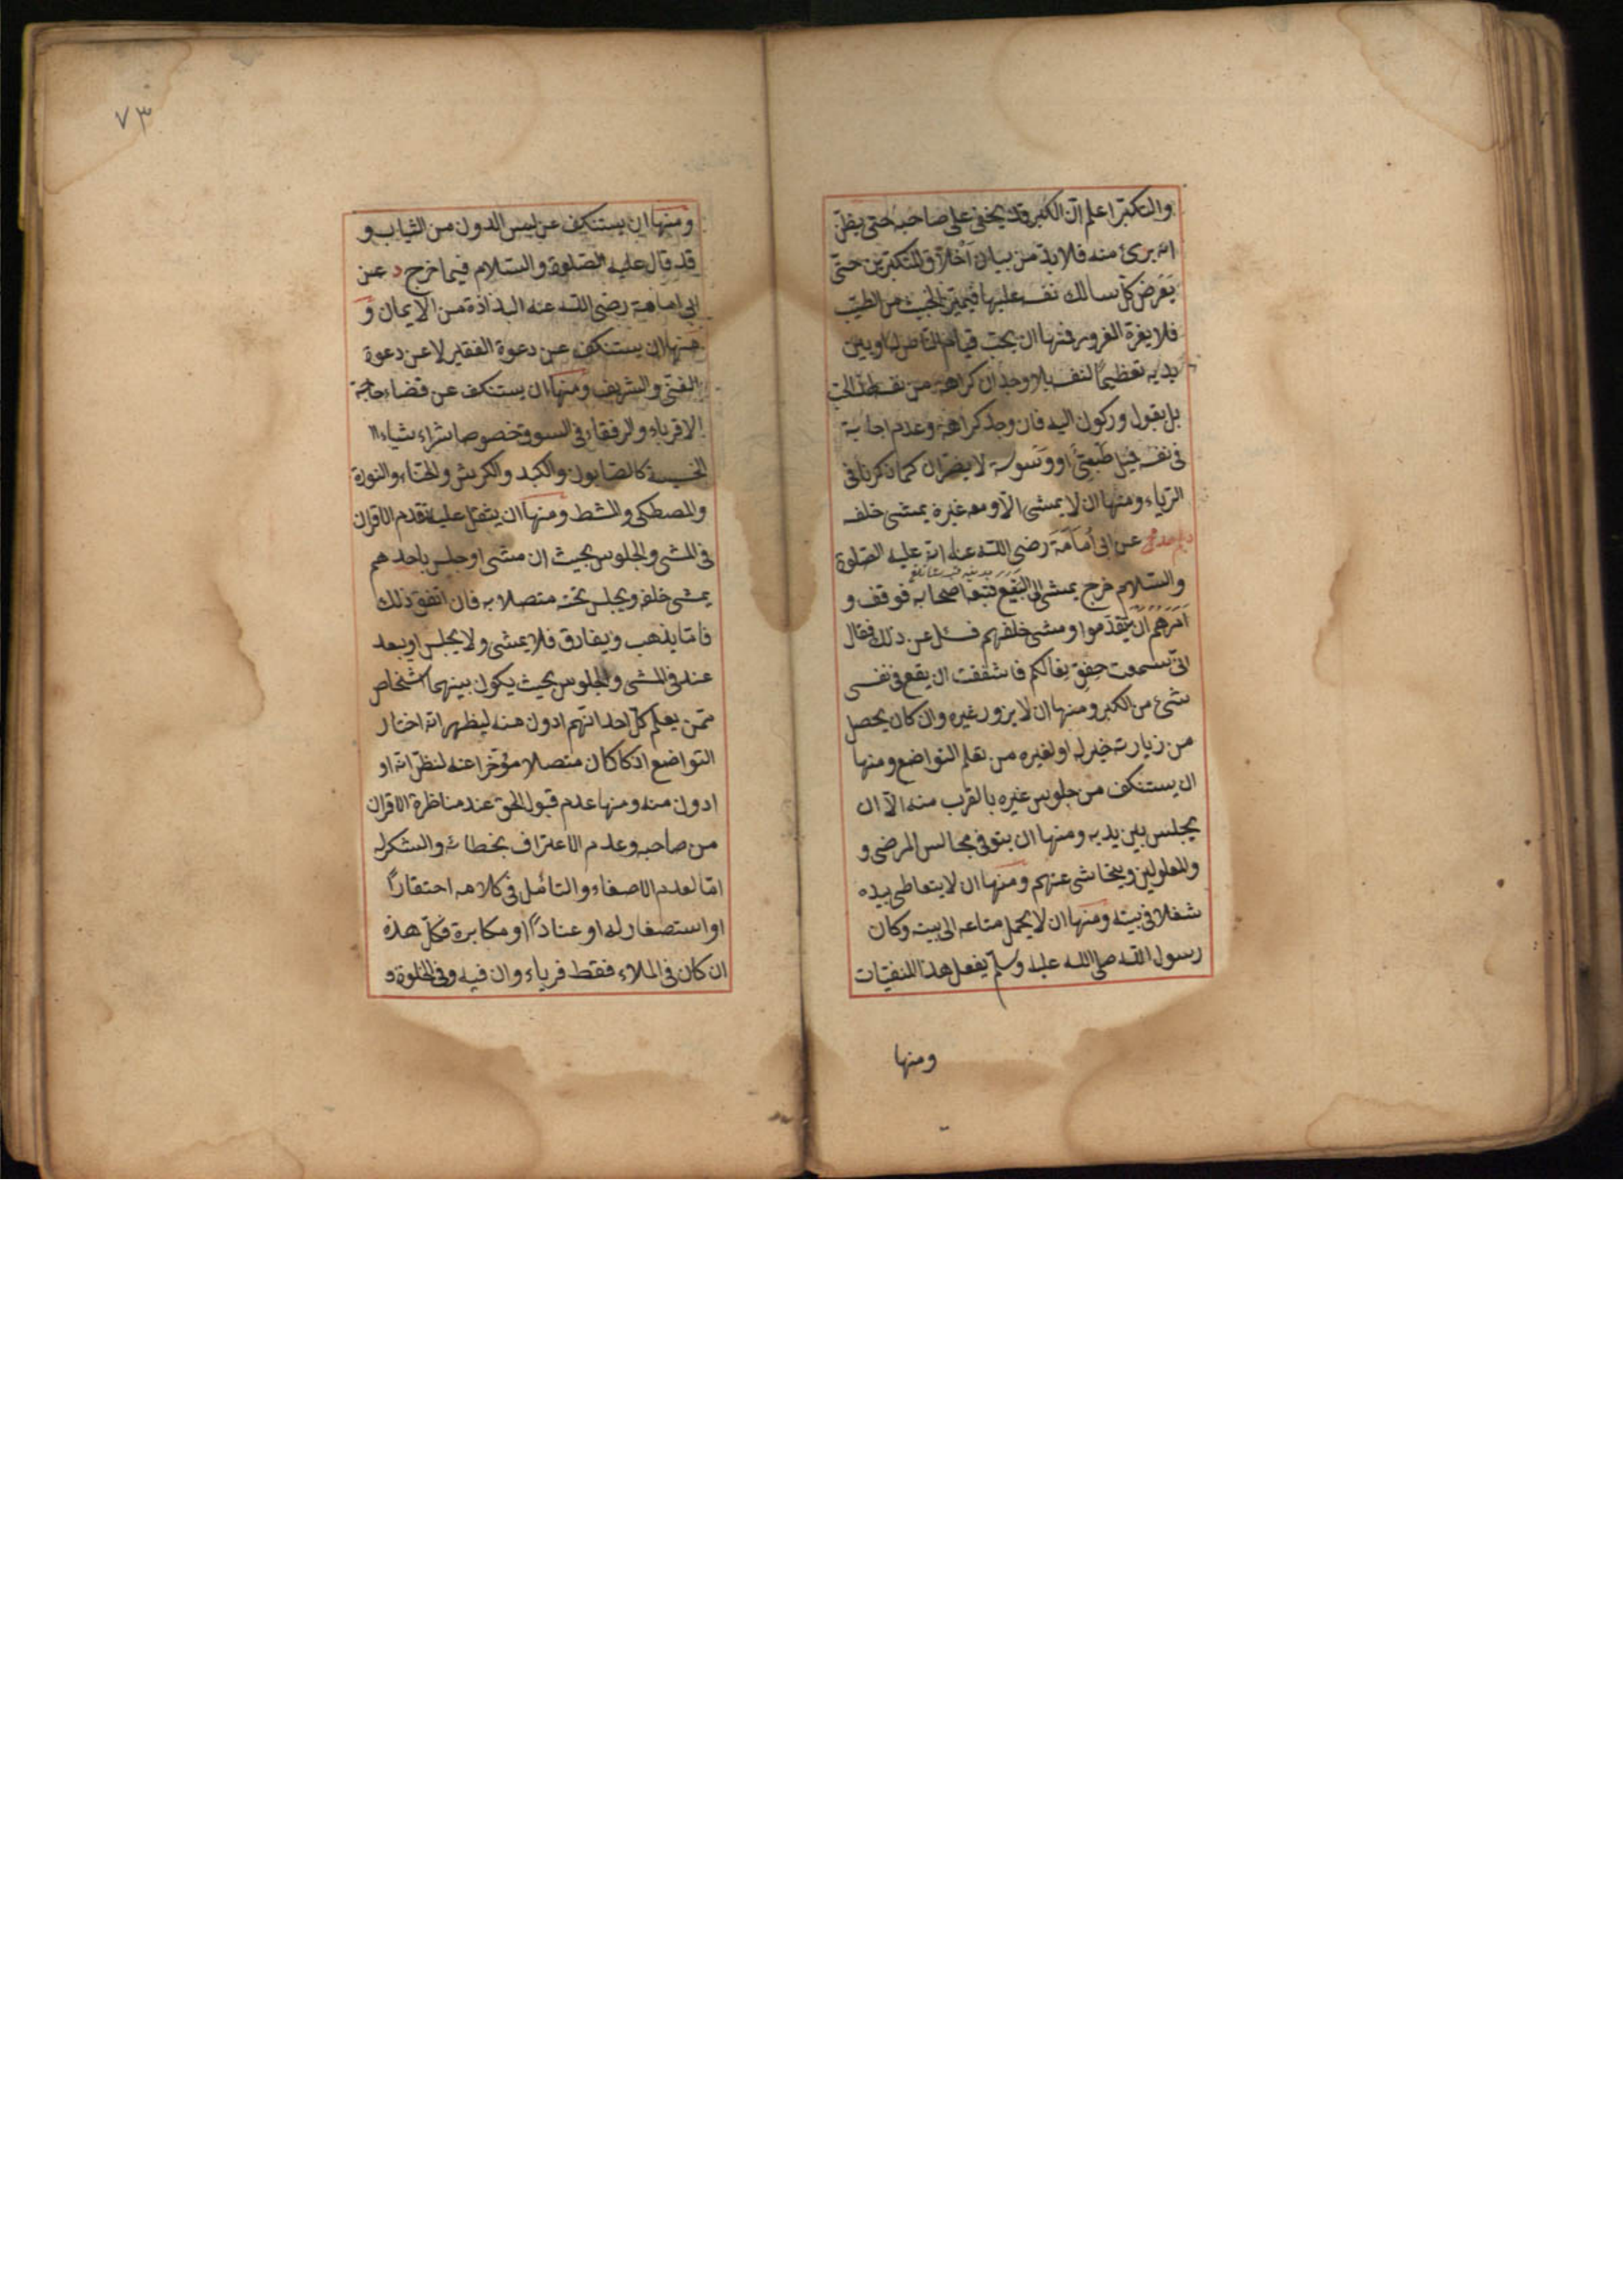 والتكبر اعلم ان الكبر قد يخفى على صاحبه حتى يظن
انه برئ منه فلا بد من بيان اخلاق المتكبرين حتى
يعرض كل سالك نفسه عليها فيميز الخبيث من الطيب
فلا يغره الغرور فمنها ان يحب قيام الناس له او بين
يديه تعظيماً لنفسه بلا وجدان كراهة من نفسه لذلك الحب
بل بقبول وركون اليه فان وجد كراهة وعدم اجابة
فى نفسه فميل طبيعى او وسوسة لا يضران كما ذكرنا فى
الرياء ومنها ان لا يمشى الا ومعه غيره يمشى خلفه
عن ابى أمامة رضى الله عنه انه عليه الصلوة
والسلام خرج يمشى الى البقيع فتبعه اصحابه فوقف و
امرهم ان يتقدموا ومشى خلفهم فسئل عن ذلك فقال
انى سمعت خفق نعالكم فاشفقت ان يقع فى نفسى
شئ من الكبر ومنها ان لا يزور غيره وان كان يحصل
من زيارته خير له او لغيره من تعلم التواضع ومنها
ان يستنكف من جلوس غيره بالقرب منه الا ان
يجلس بين يديه ومنها ان يتوقى مجالس المرضى و
والمعلولين ويتحاشى عنهم ومنها ان لا يتعاطى بيده
شغلا فى بيته ومنها ان لا يحمل متاعه الى بيته وكان
رسول الله صلى الله عليه وسلم يفعل هذا المنفيات
ومنها
٧٣
ومنها ان يستنكف عن لبس الدون من الثياب و
قد قال عليه الصلوة والسلام فيما خرج د عن
ابى امامة رضى الله عنه البذاذة من الايمان و
منها ان يستنكف عن دعوة الفقير لا عن دعوة
الغنى والشريف ومنها ان يستنكف عن قضاء حاجة
الاقرباء والرفقاء فى السوق خصوصا شراء شياء
الخسيسة كالصابون والكبد والكرش والحناء والنورة
والمصطكى والمشط ومنها ان يثقل عليه تقدم الاقران
فى المشى والجلوس بحيث ان مشى او جلس باحدهم
يمشى خلفه ويجلس تحته متصلا به فان اتفق ذلك
فاما يذهب ويفارق فلا يمشى ولا يجلس او يبعد
عنه فى المشى والجلوس بحيث يكون بينهما اشخاص
ممن يعلم كل احد انهم ادون منه ليظهر انه اختار
التواضع اذ كان متصلا مؤخرا عنه لنظر انه او
ادون منه ومنها عدم قبول الحق عند مناظرة الاقران
من صاحبه وعدم الاعتراف بخطائه والشكر له
اما لعدم الاصغاء والتأمل فى كلامه احتقاراً
او استصغار له او عناداً او مكابرة فكل هذه
ان كان فى الملاء فقط فرياء وان فيه وفى الخلوة و